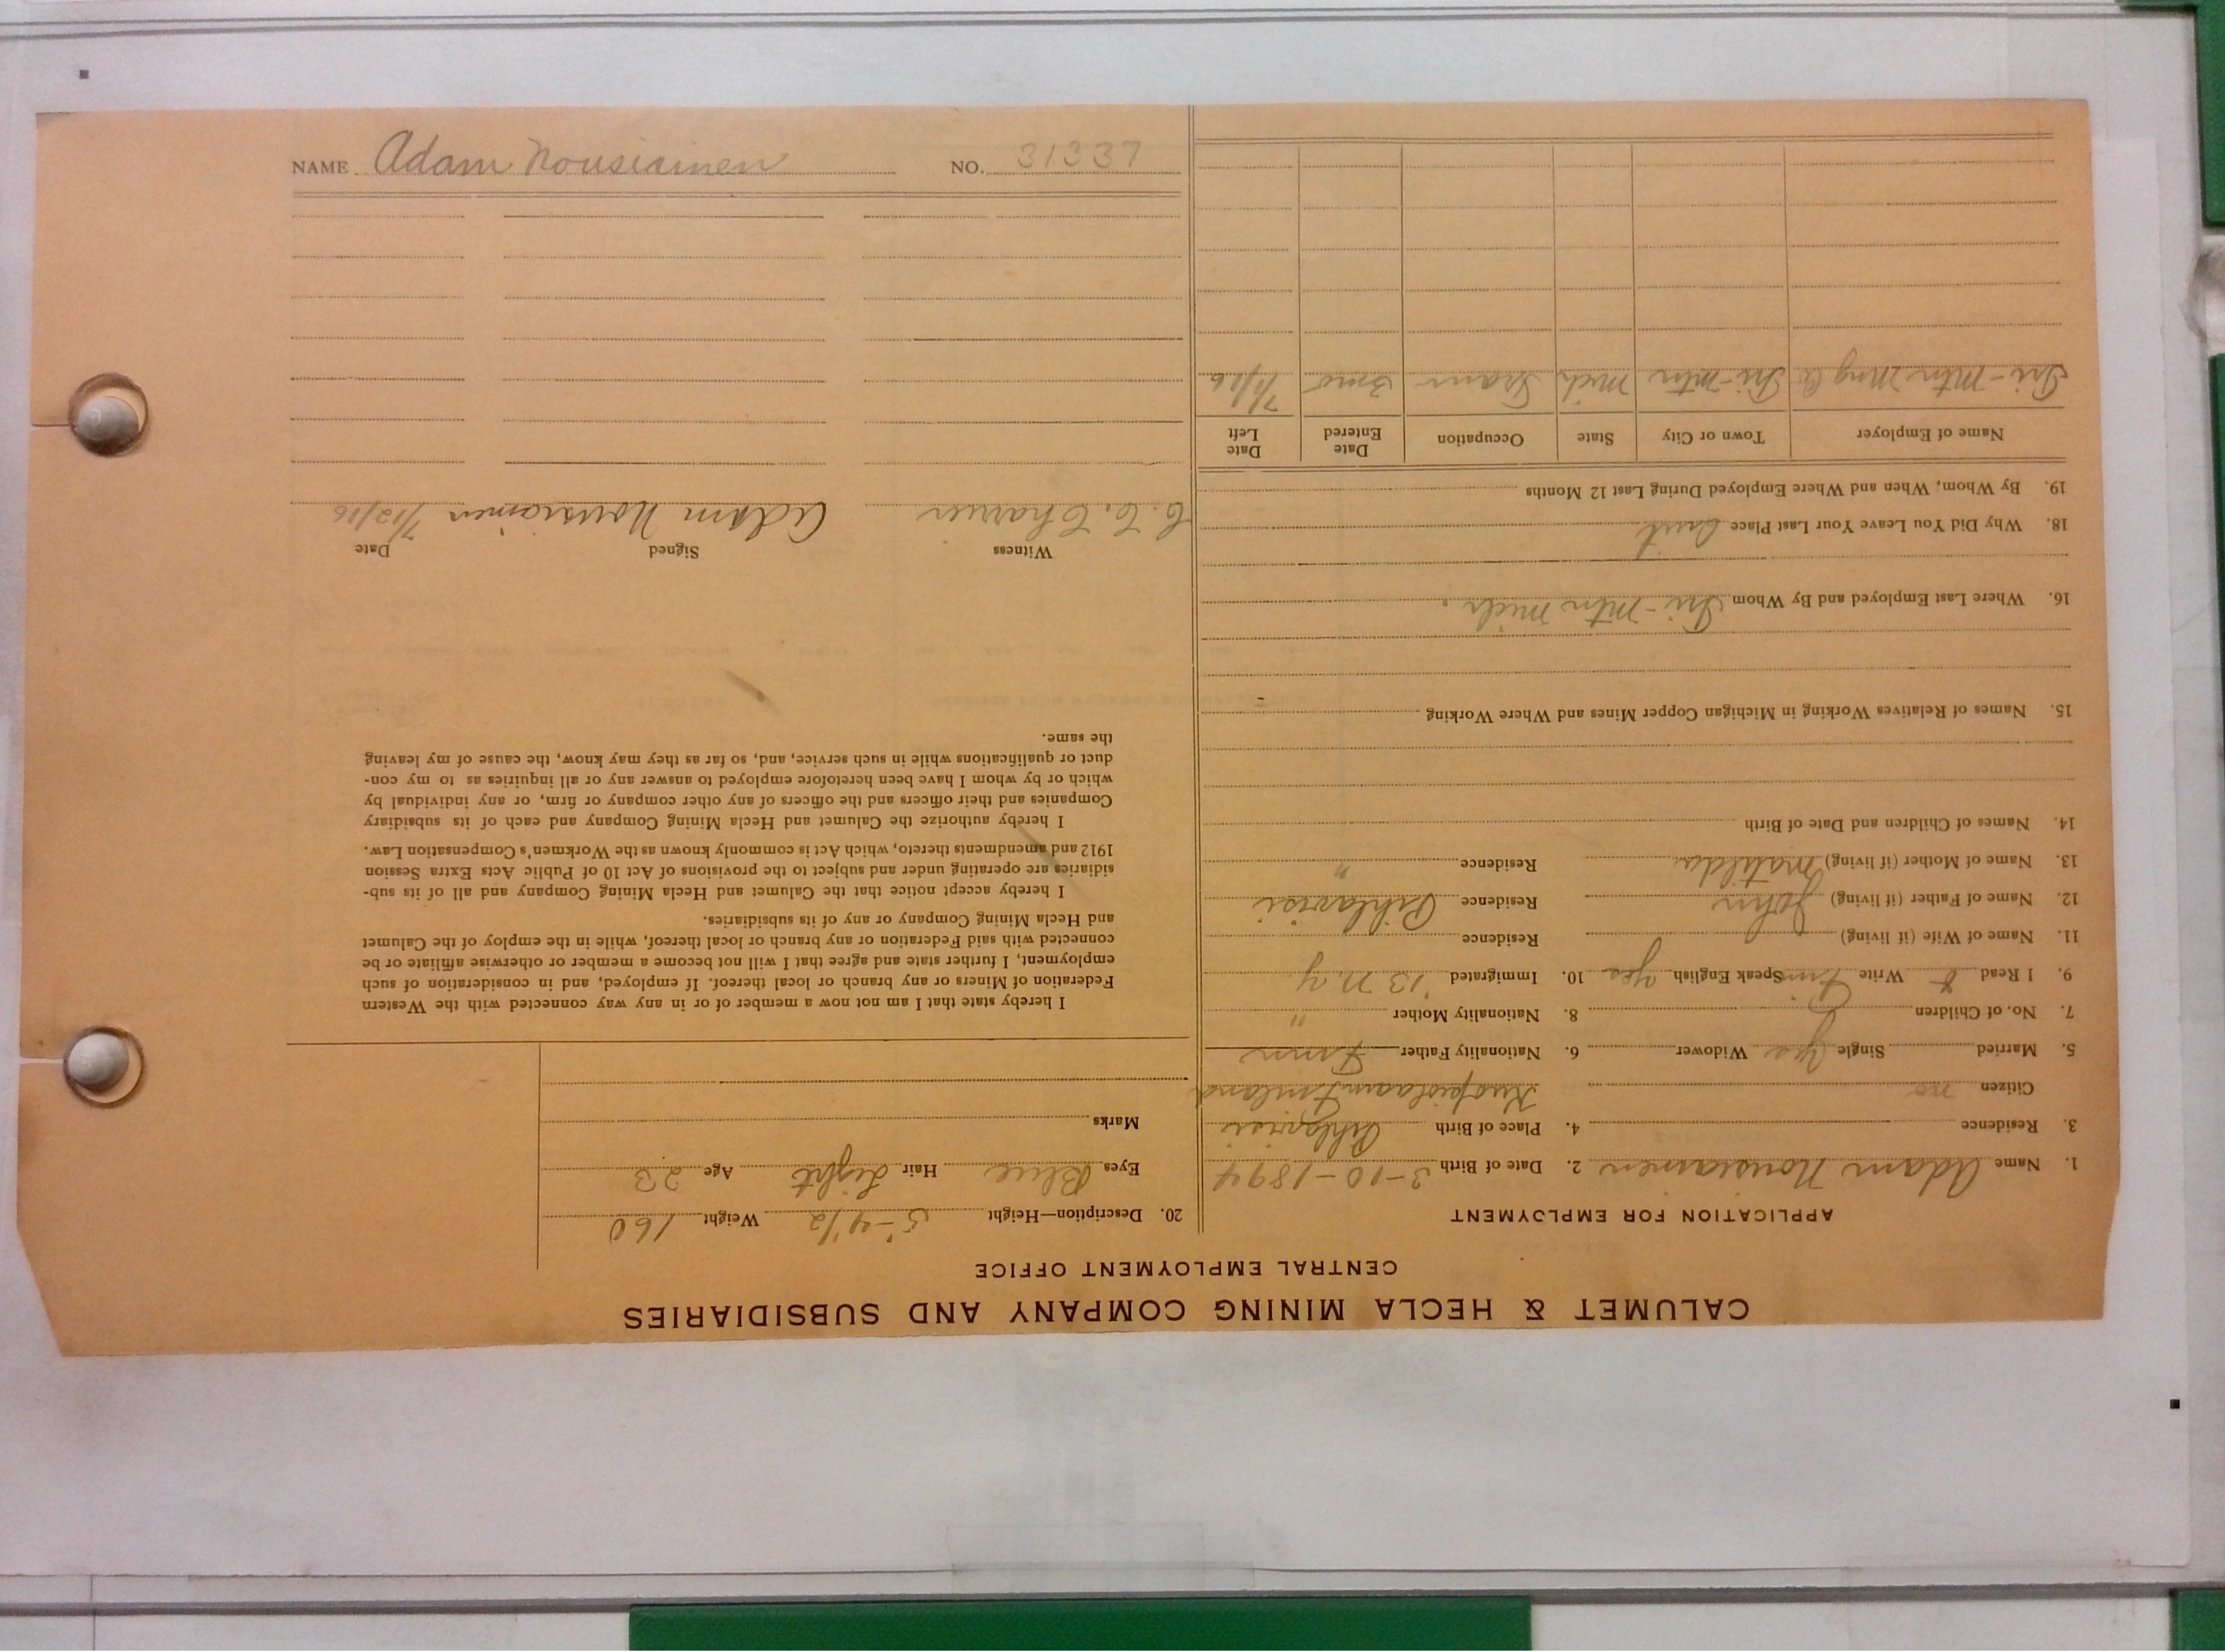 CALUMET & HECLA MINING COMPANY AND SUBSIDIARIES
CENTRAL EMPLOYMENT OFFICE
APPLICATION FOR EMPLOYMENT
1. Name Adam Nousiainen 2. Date of Birth 3-10-1894
3. Residence 4. Place of Birth Pihlavisi
Citizen no Kuopiolaani Finland
5. Married Single Yes Widower 6. Nationality Father Finn
7. No. of Children 8. Nationality Mother "
9. I Read & Write Finn Speak English yes 10. Immigrated '13 N.Y.
11. Name of Wife (if living) Residence
12. Name of Father (if living) John Residence Pihlavisi
13. Name of Mother (if living) Matilda Residence "
14. Names of Children and Date of Birth
15. Names of Relatives Working in Michigan Copper Mines and Where Working -
16. Where Last Employed and By Whom Tri-Mtn Mich.
18. Why Did You Leave Your Last Place Quit
19. By Whom, When and Where Employed During Last 12 Months
Name of Employer Town or City State Occupation Date Entered Date Left
Tri-Mtn Mng Co Tri-Mtn Mich Tram 3mo 7/1/16
20. Description—Height 5-4 1/2 Weight 160
Eyes Blue Hair Light Age 23
Marks
I hereby state that I am not now a member of or in any way connected with the Western
Federation of Miners or any branch or local thereof. If employed, and in consideration of such
employment, I further state and agree that I will not become a member or otherwise affiliate or be
connected with said Federation or any branch or local thereof, while in the employ of the Calumet
and Hecla Mining Company or any of its subsidiaries.
I hereby accept notice that the Calumet and Hecla Mining Company and all of its sub-
sidiaries are operating under and subject to the provisions of Act 10 of Public Acts Extra Session
1912 and amendments thereto, which Act is commonly known as the Workmen's Compensation Law.
I hereby authorize the Calumet and Hecla Mining Company and each of its subsidiary
Companies and their officers and the officers of any other company or firm, or any individual by
which or by whom I have been heretofore employed to answer any or all inquiries as to my con-
duct or qualifications while in such service, and, so far as they may know, the cause of my leaving
the same.
Witness Signed Date
C. C. Adam Nousiainen 7/12/16
NAME Adam Nousiainen NO. 31337